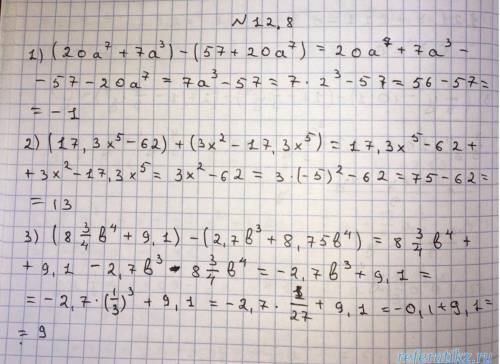 №12.8
1) (20a⁷ + 7a³) - (57 + 20a⁷) = 20a⁷ + 7a³ -
- 57 - 20a⁷ = 7a³ - 57 = 7 · 2³ - 57 = 56 - 57 =
= -1
2) (17,3x⁵ - 62) + (3x² - 17,3x⁵) = 17,3x⁵ - 62 +
+ 3x² - 17,3x⁵ = 3x² - 62 = 3 · (-5)² - 62 = 75 - 62 =
= 13
3) (8 3/4 в⁴ + 9,1) - (2,7в³ + 8,75в⁴) = 8 3/4 в⁴ +
+ 9,1 - 2,7в³ - 8 3/4 в⁴ = -2,7в³ + 9,1 =
= -2,7 · (1/3)³ + 9,1 = -2,7 · 1/27 + 9,1 = -0,1 + 9,1 =
= 9
reforketiks.ru